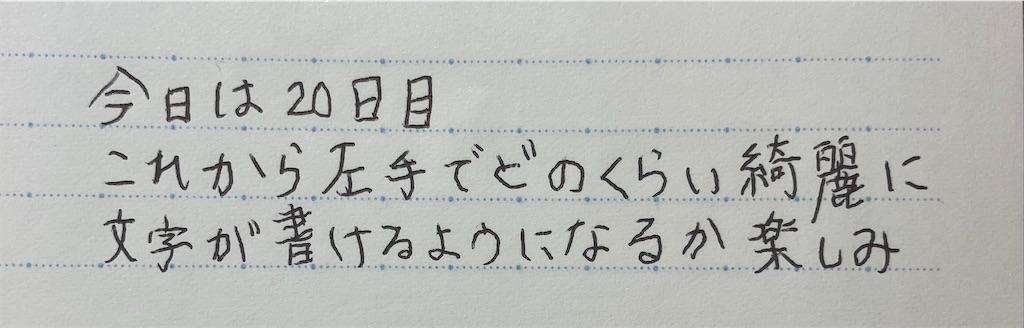 今日は20日目
これから左手でどのくらい綺麗に
文字が書けるようになるか楽しみ